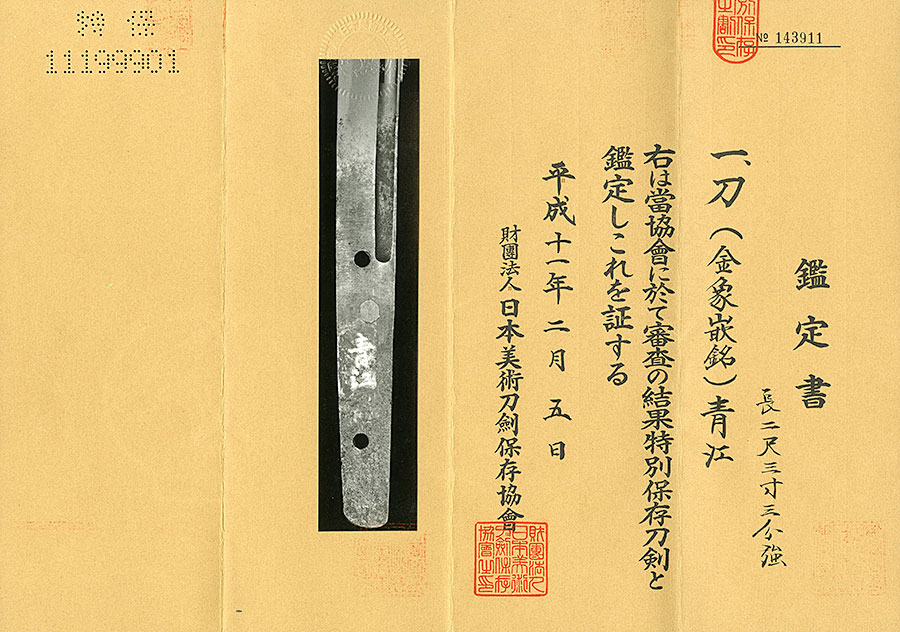 № 143911
鑑定書
一、刀（金象嵌銘）青江
長二尺三寸三分強
右は當協會に於て審査の結果特別保存刀剣と
鑑定しこれを証する
平成十一年二月五日
財團法人日本美術刀劍保存協會
財團法人日本美術刀劍保存協會之印
青江
特保
11199901